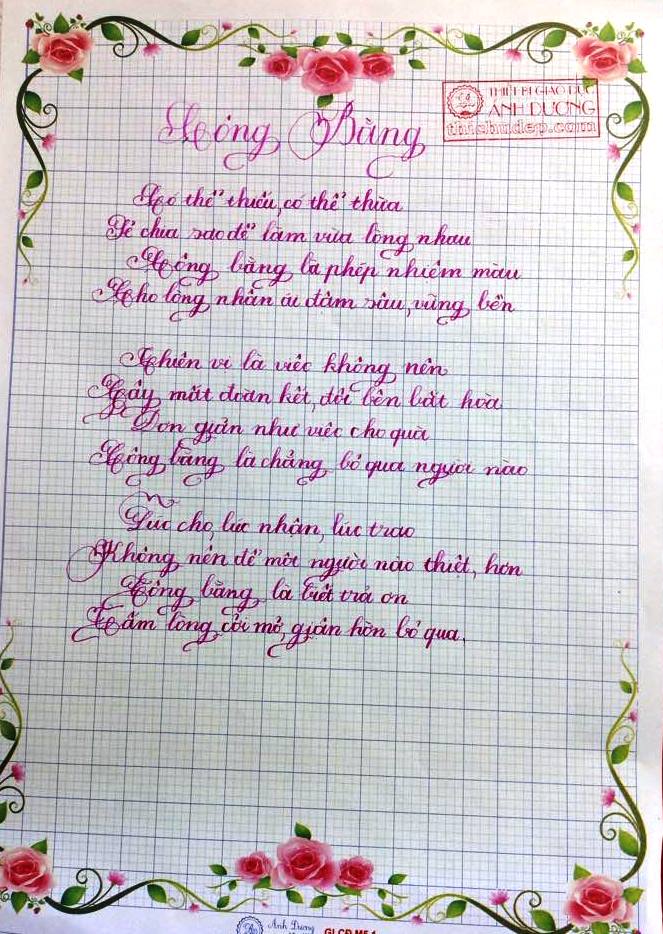 THIẾT BỊ GIÁO DỤC
ÁNH DƯƠNG
thichudep.com
Công Bằng
Có thể thiếu, có thể thừa
Sẻ chia sao để làm vừa lòng nhau
Công bằng là phép nhiệm màu
Cho lòng nhân ái đằm sâu, vững bền
Thiên vị là việc không nên
Gây mất đoàn kết, đôi bên bất hòa
Đơn giản như việc cho quà
Công bằng là chẳng bỏ qua người nào
Lúc cho, lúc nhận, lúc trao
Không nên để một người nào thiệt, hơn
Công bằng là biết trả ơn
Tấm lòng cởi mở, giận hờn bỏ qua.
Ánh Dương
GLCĐ M5.1